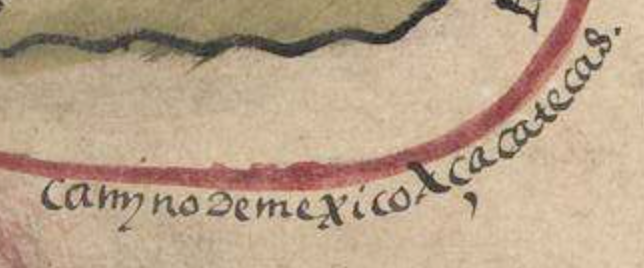 camyno de mexico A çacatecas.